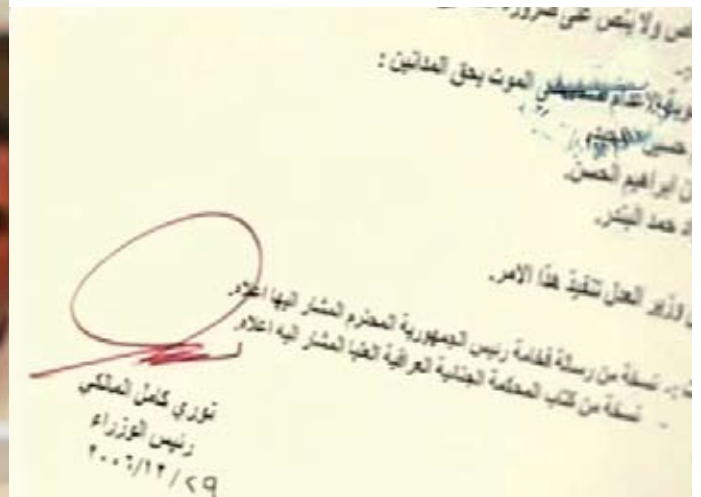 ولا ينص على ضرورة
الموت بحق المدانين :
حسين المجيد
ابراهيم الحسن.
حمد البندر.
وزير العدل تنفيذ هذا الامر.
نسخة من رسالة فخامة رئيس الجمهورية المحترم المشار اليها اعلاه
- نسخة من كتاب المحكمة الجنائية العراقية العليا المشار اليه اعلاه
نوري كامل المالكي
رئيس الوزراء
٢٠٠٦/١٢/٢٩